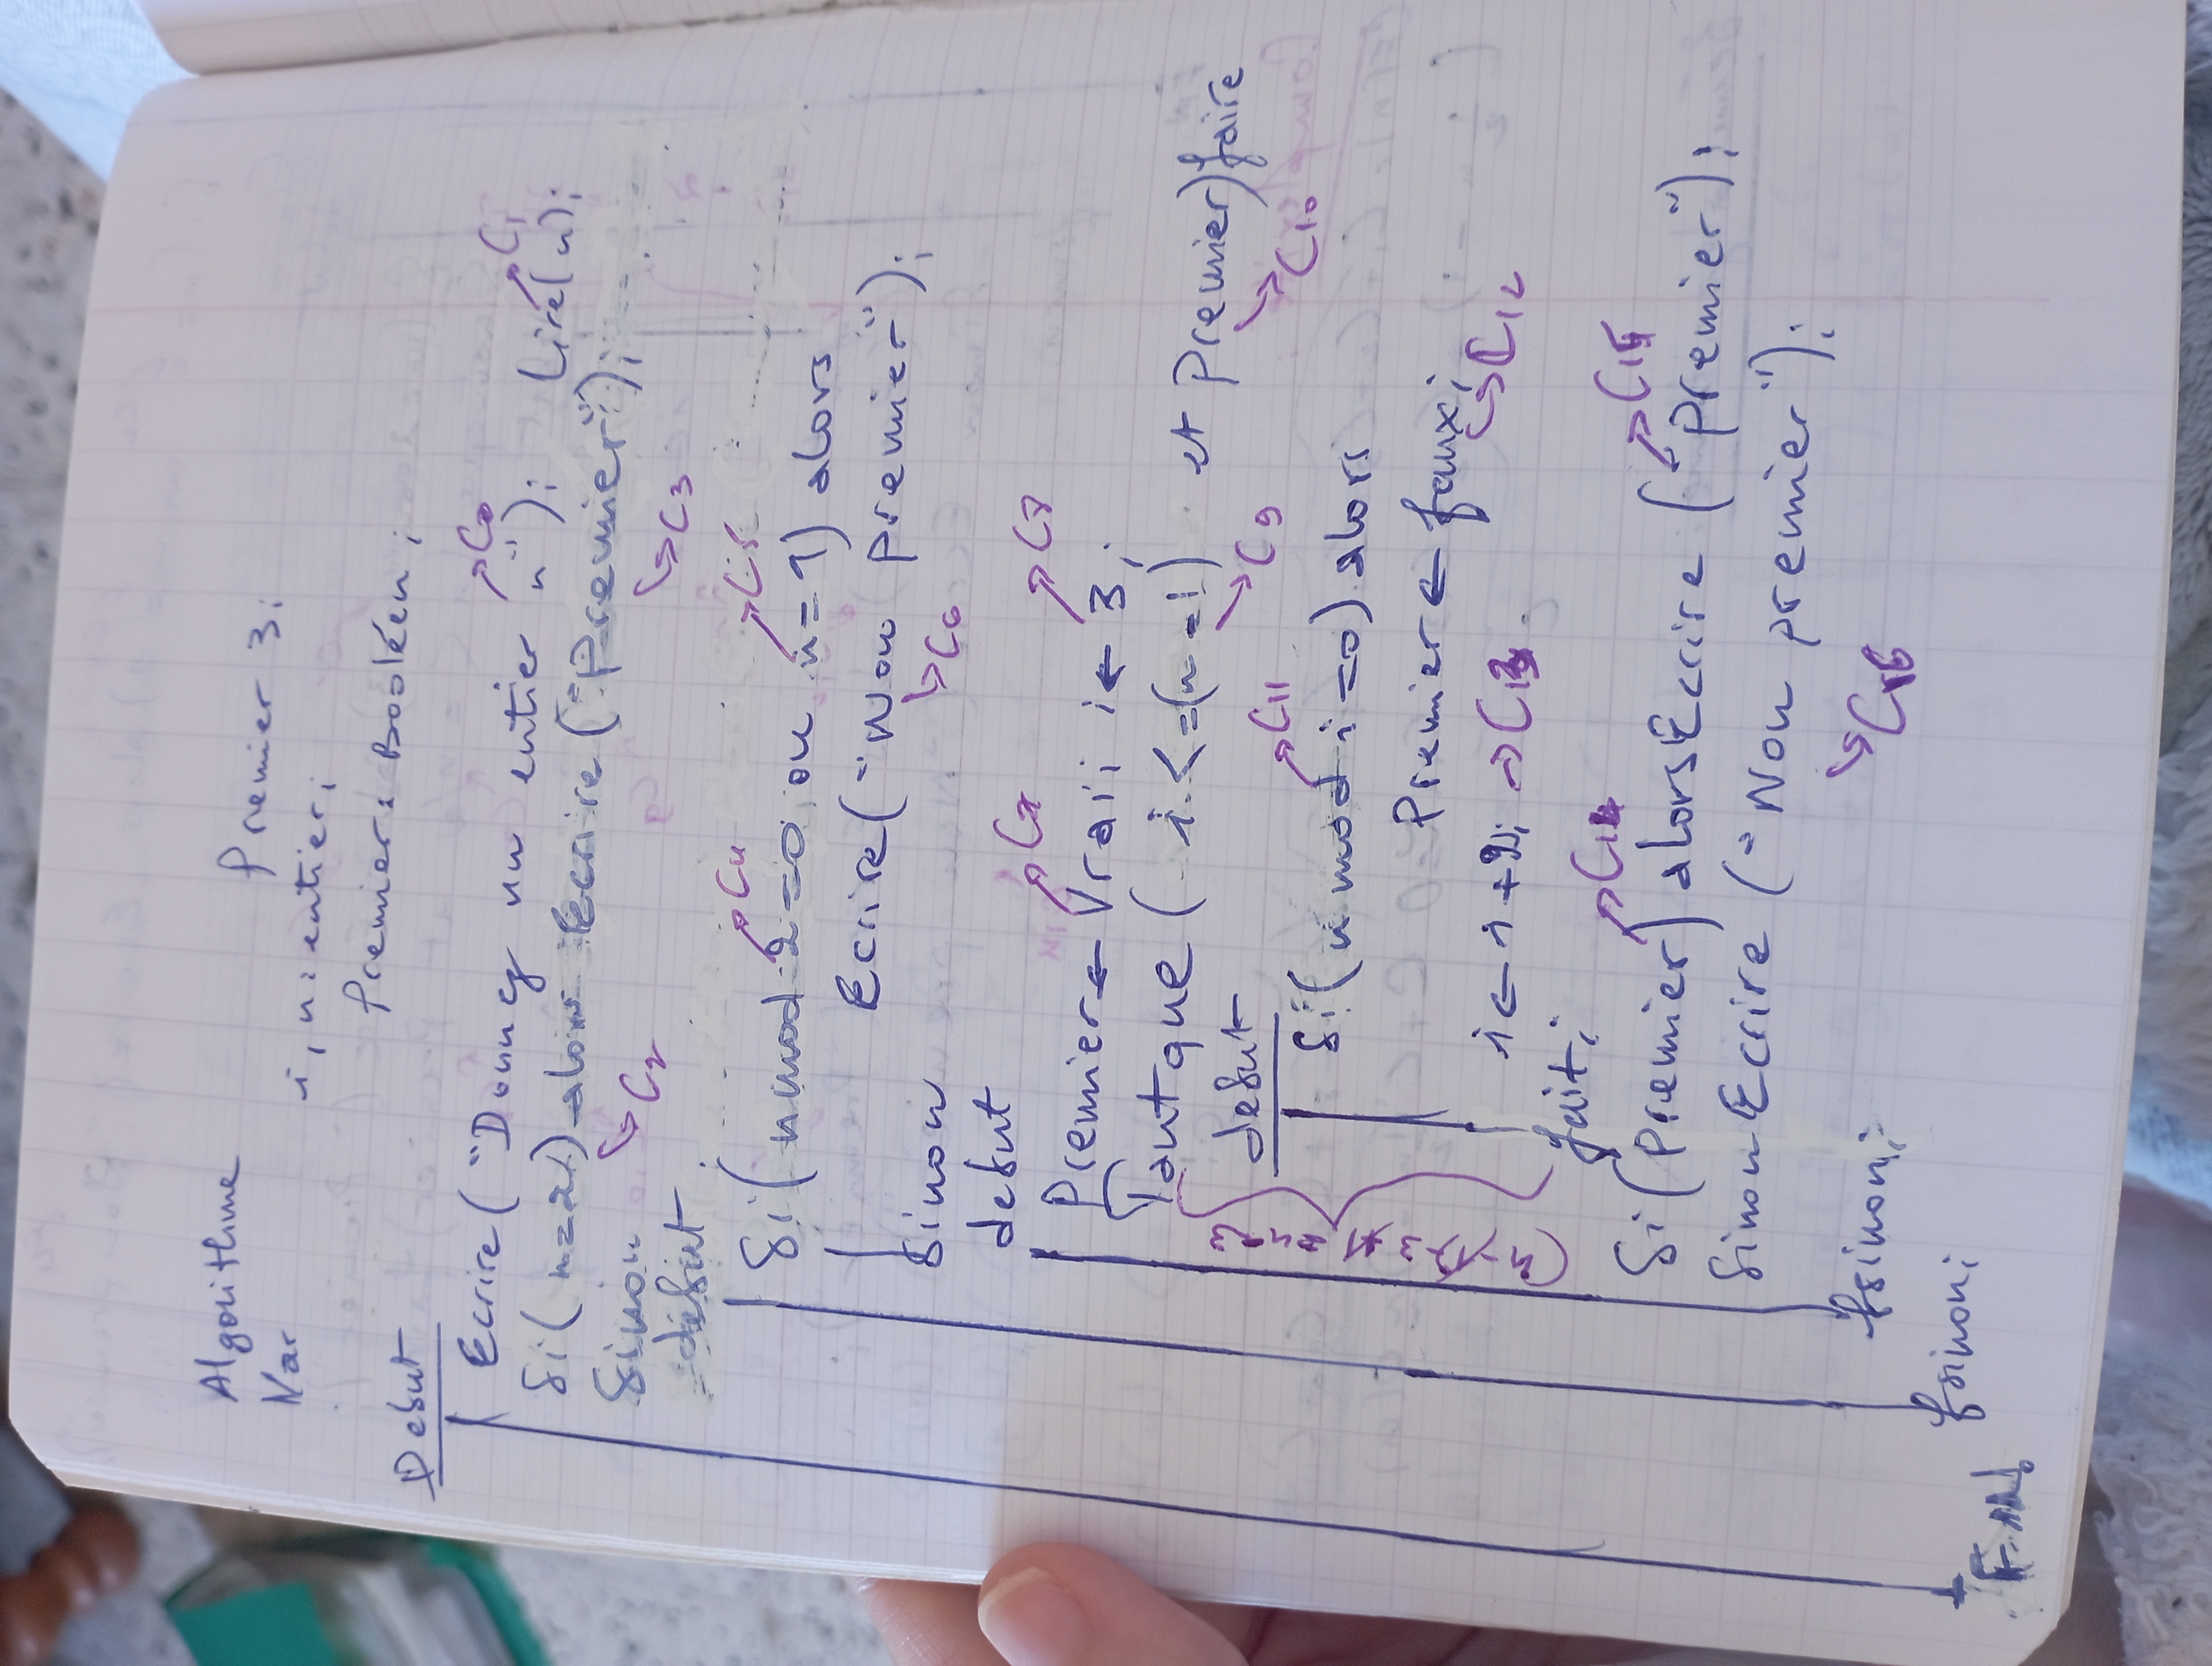 Algorithme Premier 3;
Var i, n: entier;
Premier: Booléen;
Debut
Ecrire ("Donney un entier n"); lire(n);
→C0 →C1
Si (n=2) alors Ecrire ("Premier");
↳C2 ↳C3
Sinon
debut
→C4 →C5
Si (n mod 2 = 0 ou n = 1) alors
Ecrire ("Non premier");
↳C6
Sinon
debut
→C7 →C8
Premier ← Vrai; i ← 3;
Tantque (i <= (n-1) et Premier) faire
→C9 →C10
debut
→C11
Si (n mod i = 0) alors
Premier ← faux;
↳C12
i ← i + 2; →C13
fait;
→C14
Si (Premier) alors Ecrire ("Premier");
→C15
Sinon Ecrire ("Non premier");
↳C16
fsinon;
fsinon;
Fin!